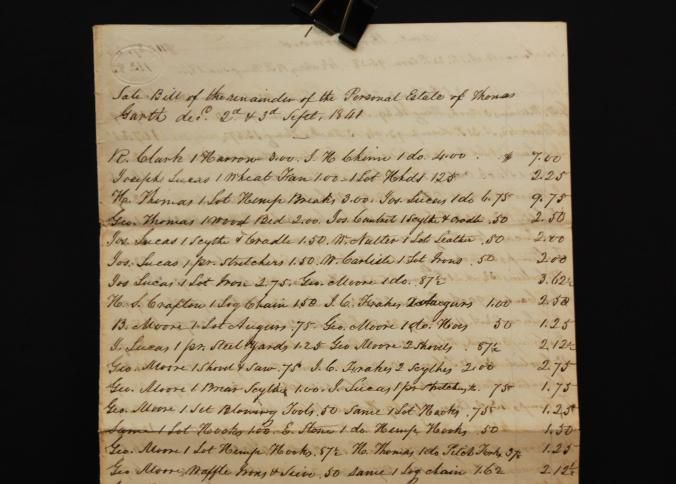 Sale Bill of the remainder of the Personal Estate of Thomas
Garth decd. 2d & 3d Sept. 1841
R. Clark 1 Harrow 3.00. J. H. Chinn 1 do. 4.00 . $ 7.00
Joseph Lucas 1 Wheat Fan 1.00 1 Lot Hhds 125 2.25
H. Thomas 1 Lot Hemp Breaks 3.00. Jos. Lucas 1 do 6.75 9.75
Geo. Thomas 1 Wood Bed 2.00 Jos. 1 Scythe & Cradle .50 2.50
Jos. Lucas 1 Scythe & Cradle 1.50. W. Nutter 1 Lot Leather .50 2.00
Jos. Lucas 1 pr. Stretchers 1.50. W. Carlisle 1 Lot Irons .50 2.00
Jos Lucas 1 Lot Iron 2.75. Geo. Moore 1 do. .87½ 3.62½
H. S. Crafton 1 Log Chain 150 J. C. Augurs 1.00 2.50
B. Moore 1 Lot Augurs .75 Geo. Moore 1 do. Hoes 50 1.25
J. Lucas 1 pr. Steel Yards 1.25 Geo Moore 2 Shovels .87½ 2.12½
Geo. Moore 1 Shovel & Saw .75 J. C. 2 Scythes 2.00 2.75
Geo. Moore 1 Briar Scythe 1.00. J. Lucas 1 pr 75 1.75
Geo. Moore 1 Set Blowing Tools .50 Same 1 Lot Hooks .75 1.25
Same 1 Lot Hooks 1.00 E. Stone 1 do Hemp Hooks .50 1.50
Geo. Moore 1 Lot Hemp Hooks .87½ H. Thomas 1 do Pitch Forks 37½ 1.25
Geo. Moore Waffle Irons & Seive .50 Same 1 Log chain 1.62 2.12½